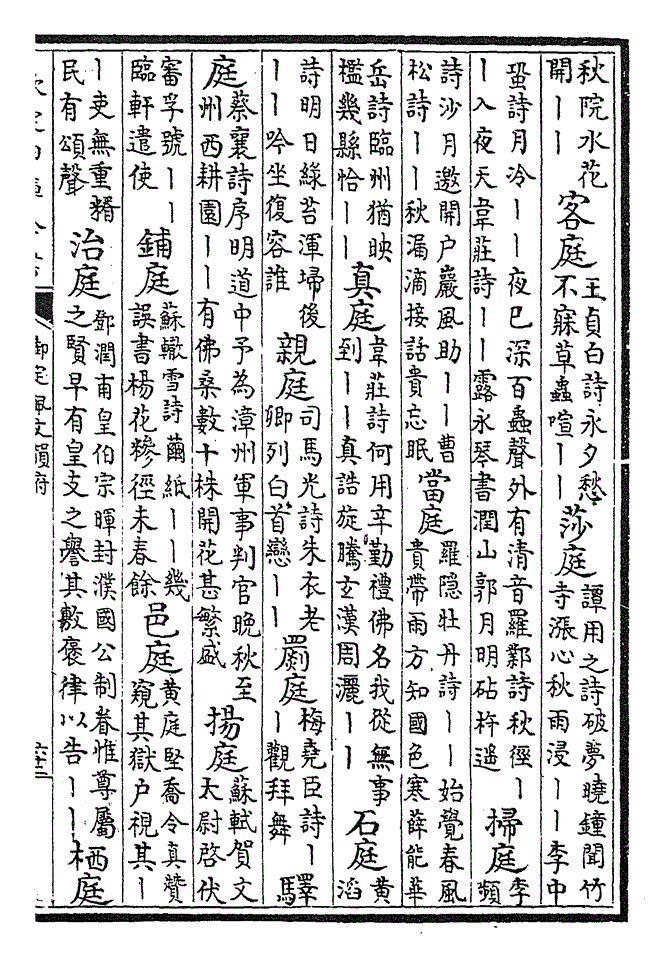 秋院水花開丨丨客庭王貞白詩永夕愁不寐草蟲喧丨丨莎庭譚用之詩破夢曉鐘聞竹寺漲心秋雨浸丨丨李中
蛩詩月冷丨丨夜已深百蟲聲外有清音羅鄴詩秋徑丨丨入夜天韋莊詩丨丨露永琴書潤山郭月明砧杵遥掃庭李頻
詩沙月邀開户巖風助丨丨曹松詩丨丨秋漏滴接話貴忘眠當庭羅隱牡丹詩丨丨始覺春風貴帶雨方知國色寒薛能華
岳詩臨州猶映檻幾縣恰丨丨真庭韋莊詩何用辛勤禮佛名我從無事到丨丨真誥旋騰玄漢周灑丨丨石庭黄滔
詩明日綠苔渾埽後丨丨吟坐復容誰親庭司馬光詩朱衣老卿列白首戀丨丨罽庭梅堯臣詩丨丨觀拜舞驛
庭蔡襄詩序明道中予為漳州軍事判官晚秋至州西耕園丨丨有佛桑數十株開花甚繁盛揚庭蘇軾賀文太尉啓伏
審孚號丨丨臨軒遣使鋪庭蘇轍雪詩繭紙丨丨幾誤書楊花糝徑未春餘邑庭黄庭堅喬令真贊窺其獄户視其丨
丨吏無重糈民有頌聲治庭鄧潤甫皇伯宗暉封濮國公制眷惟尊屬之賢早有皇支之譽其敷褒律以告丨丨栖庭
御定佩文韻府